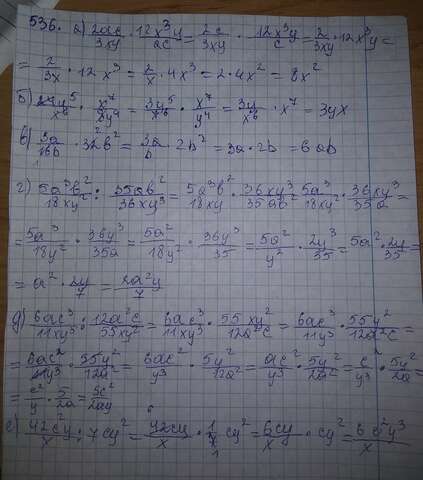 536. а) 2ac/3xy · 12x³y/ac = 2c/3xy · 12x³y/c = 2/3xy · 12x³y =
= 2/3x · 12x³ = 2/x · 4x³ = 2 · 4x² = 8x²
б) 24y⁵/x⁶ · x⁷/8y⁴ = 3y⁵/x⁶ · x⁷/y⁴ = 3y/x⁶ · x⁷ = 3yx
в) 3a/16b · 32b² = 3a/b · 2b² = 3a · 2b = 6ab
г) 5a³b²/18xy² : 35ab²/36xy³ = 5a³b²/18xy² · 36xy³/35ab² = 5a³/18xy² · 36xy³/35a =
= 5a³/18y² · 36y³/35a = 5a²/18y² · 36y³/35 = 5a²/y² · 2y³/35 = 5a² · 2y/35 =
= a² · 2y/7 = 2a²y/7
д) 6ac³/11xy³ : 12a²c/55xy² = 6ac³/11xy³ · 55xy²/12a²c = 6ac³/11y³ · 55y²/12a²c =
= 6ac²/11y³ · 55y²/12a² = 6ac²/y³ · 5y²/12a² = ac²/y³ · 5y²/2a² = c²/y³ · 5y²/2a =
= c²/y · 5/2a = 5c²/2ay
е) 42cy/x : 7cy² = 42cy/x · 1/7 cy² = 6cy/x · cy² = 6c²y³/x